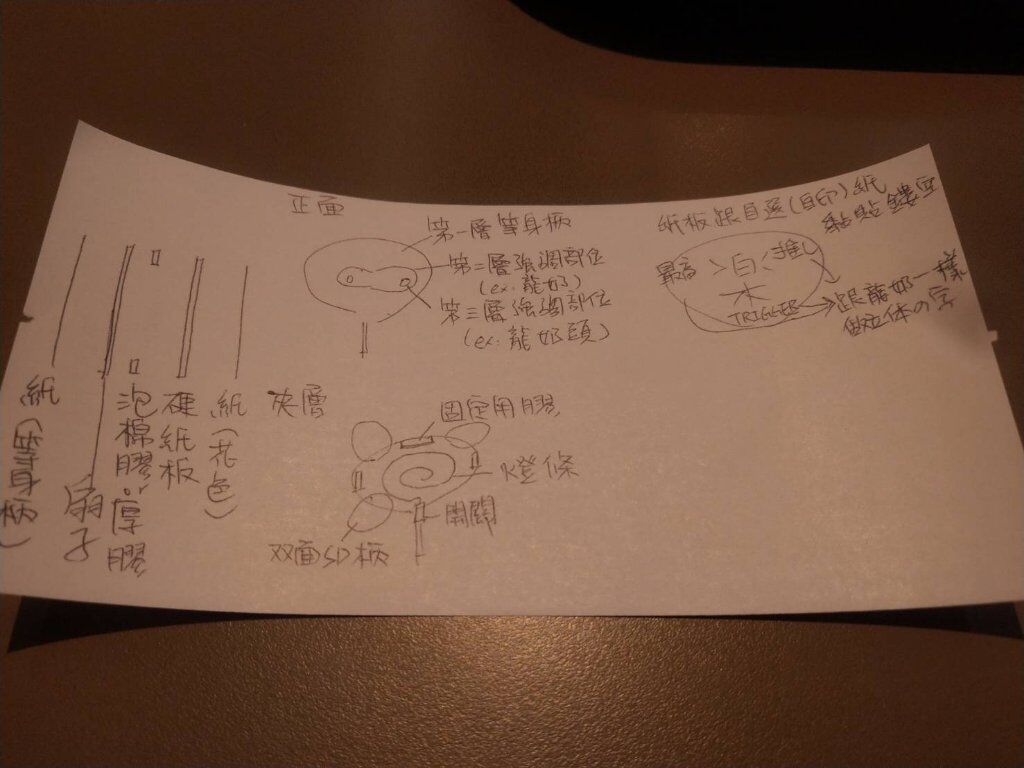 紙(等身柄)
扇子
泡棉膠:厚膠
硬紙板
紙(花色)
正面
第一層等身柄
第二層強調部位
(ex:龍奶)
第三層強調部位
(ex:龍奶頭)
夾層
固定用膠
燈條
開關
双面SD柄
紙板跟自選(自印)紙
黏貼鏤空
最高
推し
TRIGGER
跟龍奶一樣
做立体の字